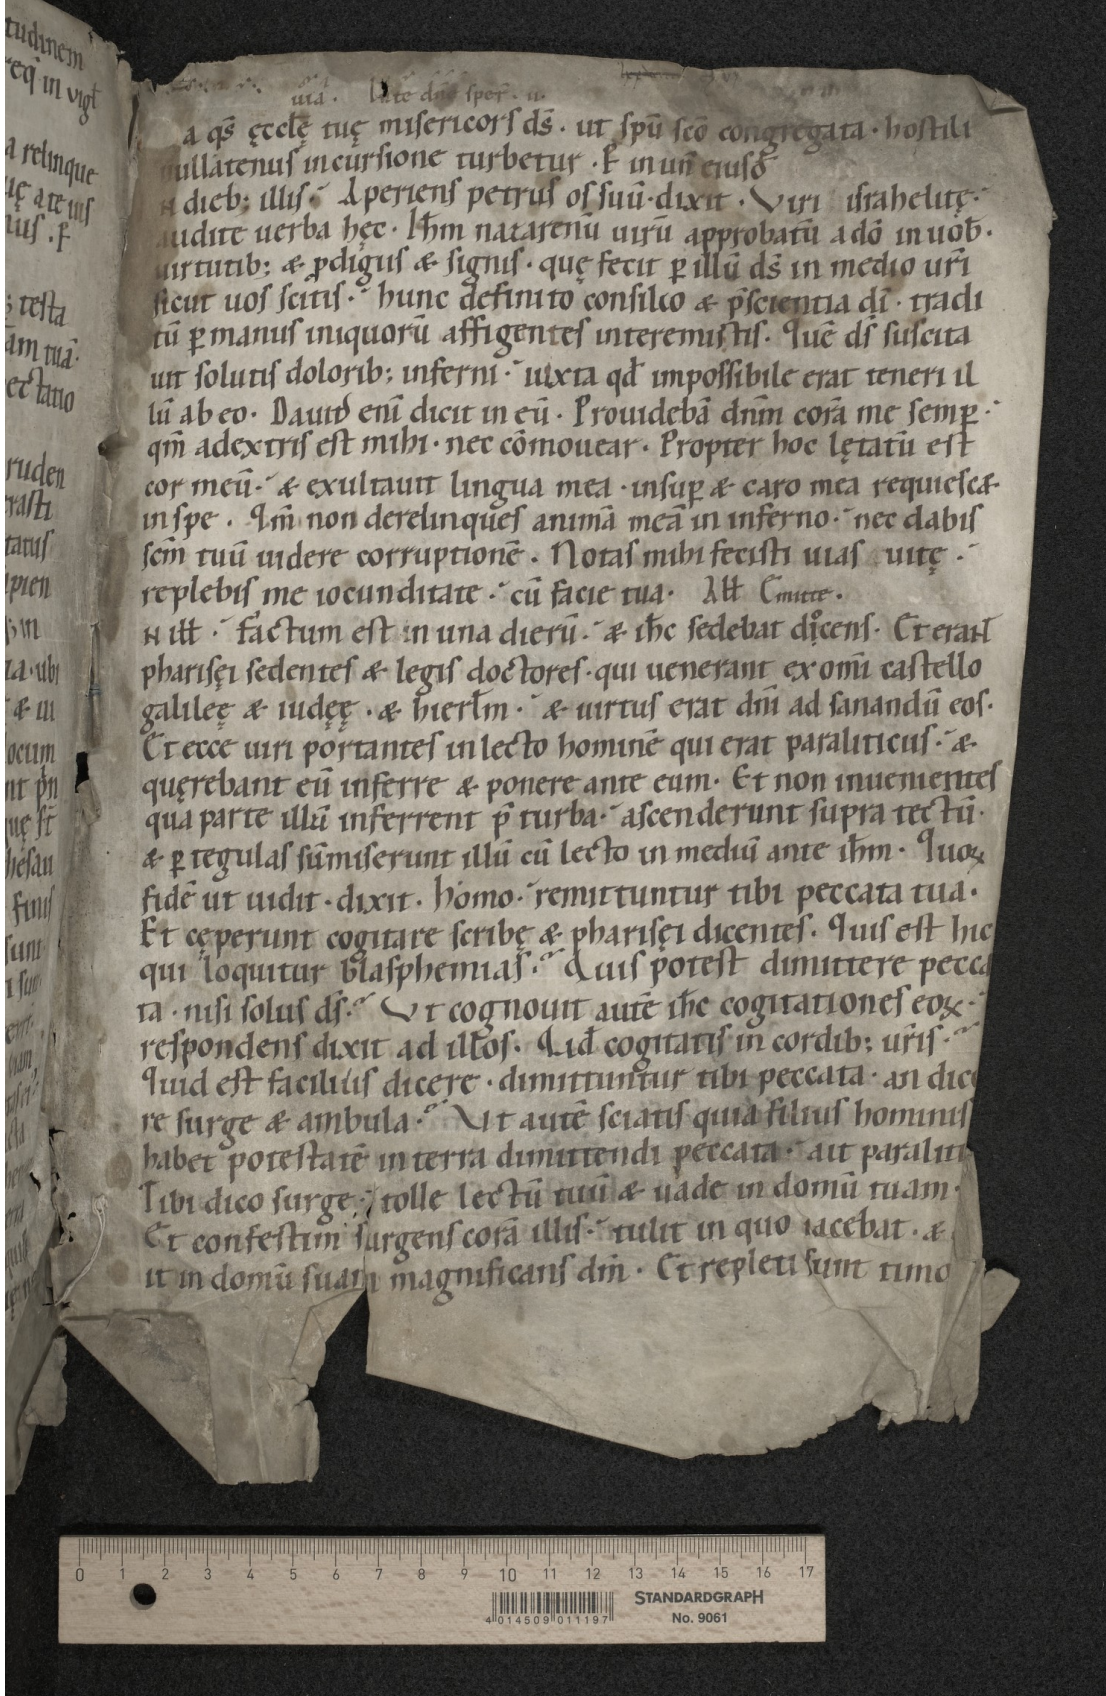 tudinem
req in vigł
a relinque
uę a te uis
nus . p̄
testa
am tuā
ectatio
ruden
rasti
tatus
pien
in
ta . ubi
& in
ocum
hesau
finis
sunt
uia . sper . ii .
a qs̄ ęcclę̄ tuę misericors ds̄ . ut sp̄u sc̄o congregata . hostili
nullatenus incursione turbetur . P̄ in un̄ eiusd̄
n dieb; illis . Aperiens petrus os suū dixit . Viri israhelitę .
audite uerba hęc . Ih̄m nazarenū uirū approbatū a dō in uob̄ .
uirtutib; & p̱digiis & signis . quę fecit p̱ illū ds̄ in medio ur̄i
sicut uos scitis . hunc definito consilio & p̄scientia dī . tradi
tū p̱ manus iniquorū affigentes interemistis . Quē ds̄ suscita
uit solutis dolorib; inferni . iuxta qd̄ impossibile erat teneri il
lū ab eo . Dauid enī dicit in eū . Prouidebā dn̄m corā me semp̱ .
qm̄ a dextris est mihi . nec cōmouear . Propter hoc lętatū est
cor meū . & exultauit lingua mea . insup̱ & caro mea requiesc&
in spe . Qm̄ non derelinques animā meā in inferno . nec dabis
sc̄m tuū uidere corruptionē . Notas mihi fecisti uias uitę .
replebis me iocunditate . cū facie tua . Ałł Emitte .
n iłł . Factum est in una dierū . & ih̄c sedebat docens . Et erant
pharisęi sedentes & legis doctores . qui uenerant ex omī castello
galileę & iudęę . & hierłm . & uirtus erat dn̄i ad sanandū eos .
Et ecce uiri portantes in lecto hominē qui erat paraliticus . &
quęrebant eū inferre & ponere ante eum . Et non inuenientes
qua parte illū inferrent p̄ turba . ascenderunt supra tectū .
& p̱ tegulas sūmiserunt illū cū lecto in mediū ante ih̄m . Quoꝝ
fidē ut uidit . dixit . Homo . remittuntur tibi peccata tua .
Et cęperunt cogitare scribę & pharisęi dicentes . Quis est hic
qui loquitur blasphemias . Quis potest dimittere pecca
ta . nisi solus ds̄ . Vt cognouit autē ih̄c cogitationes eoꝝ .
respondens dixit ad illos . Qid̄ cogitatis in cordib; ur̄is .
Quid est facilius dicere . dimittuntur tibi peccata . an dice
re surge & ambula . Vt autē sciatis quia filius hominis
habet potestatē in terra dimittendi peccata . ait paraliti
Tibi dico surge . tolle lectū tuū & uade in domū tuam .
Et confestim surgens corā illis . tulit in quo iacebat . &
iit in domū suam magnificans dm̄ . Et repleti sunt timo
0 1 2 3 4 5 6 7 8 9 10 11 12 13 14 15 16 17
4 014509 011197
STANDARDGRAPH
No. 9061